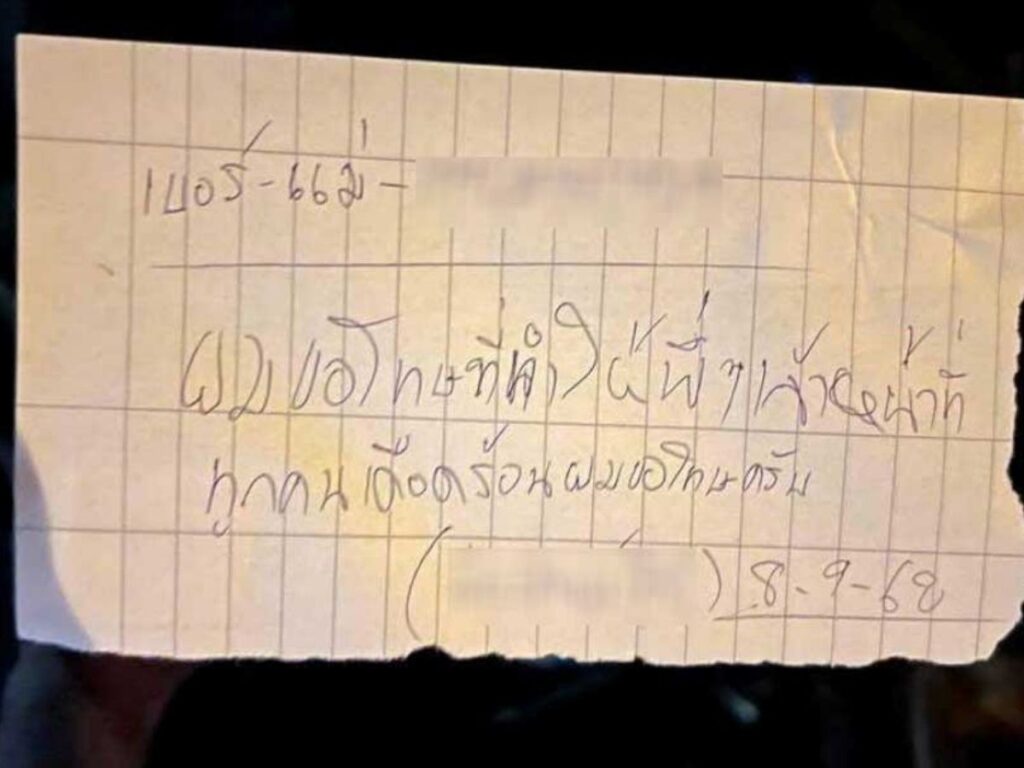 เบอร์-แม่-
ผมขอโทษที่ทำให้พี่ๆเจ้าหน้าที่
ทุกคนเดือดร้อนผมขอโทษครับ
( ) 8-9-68